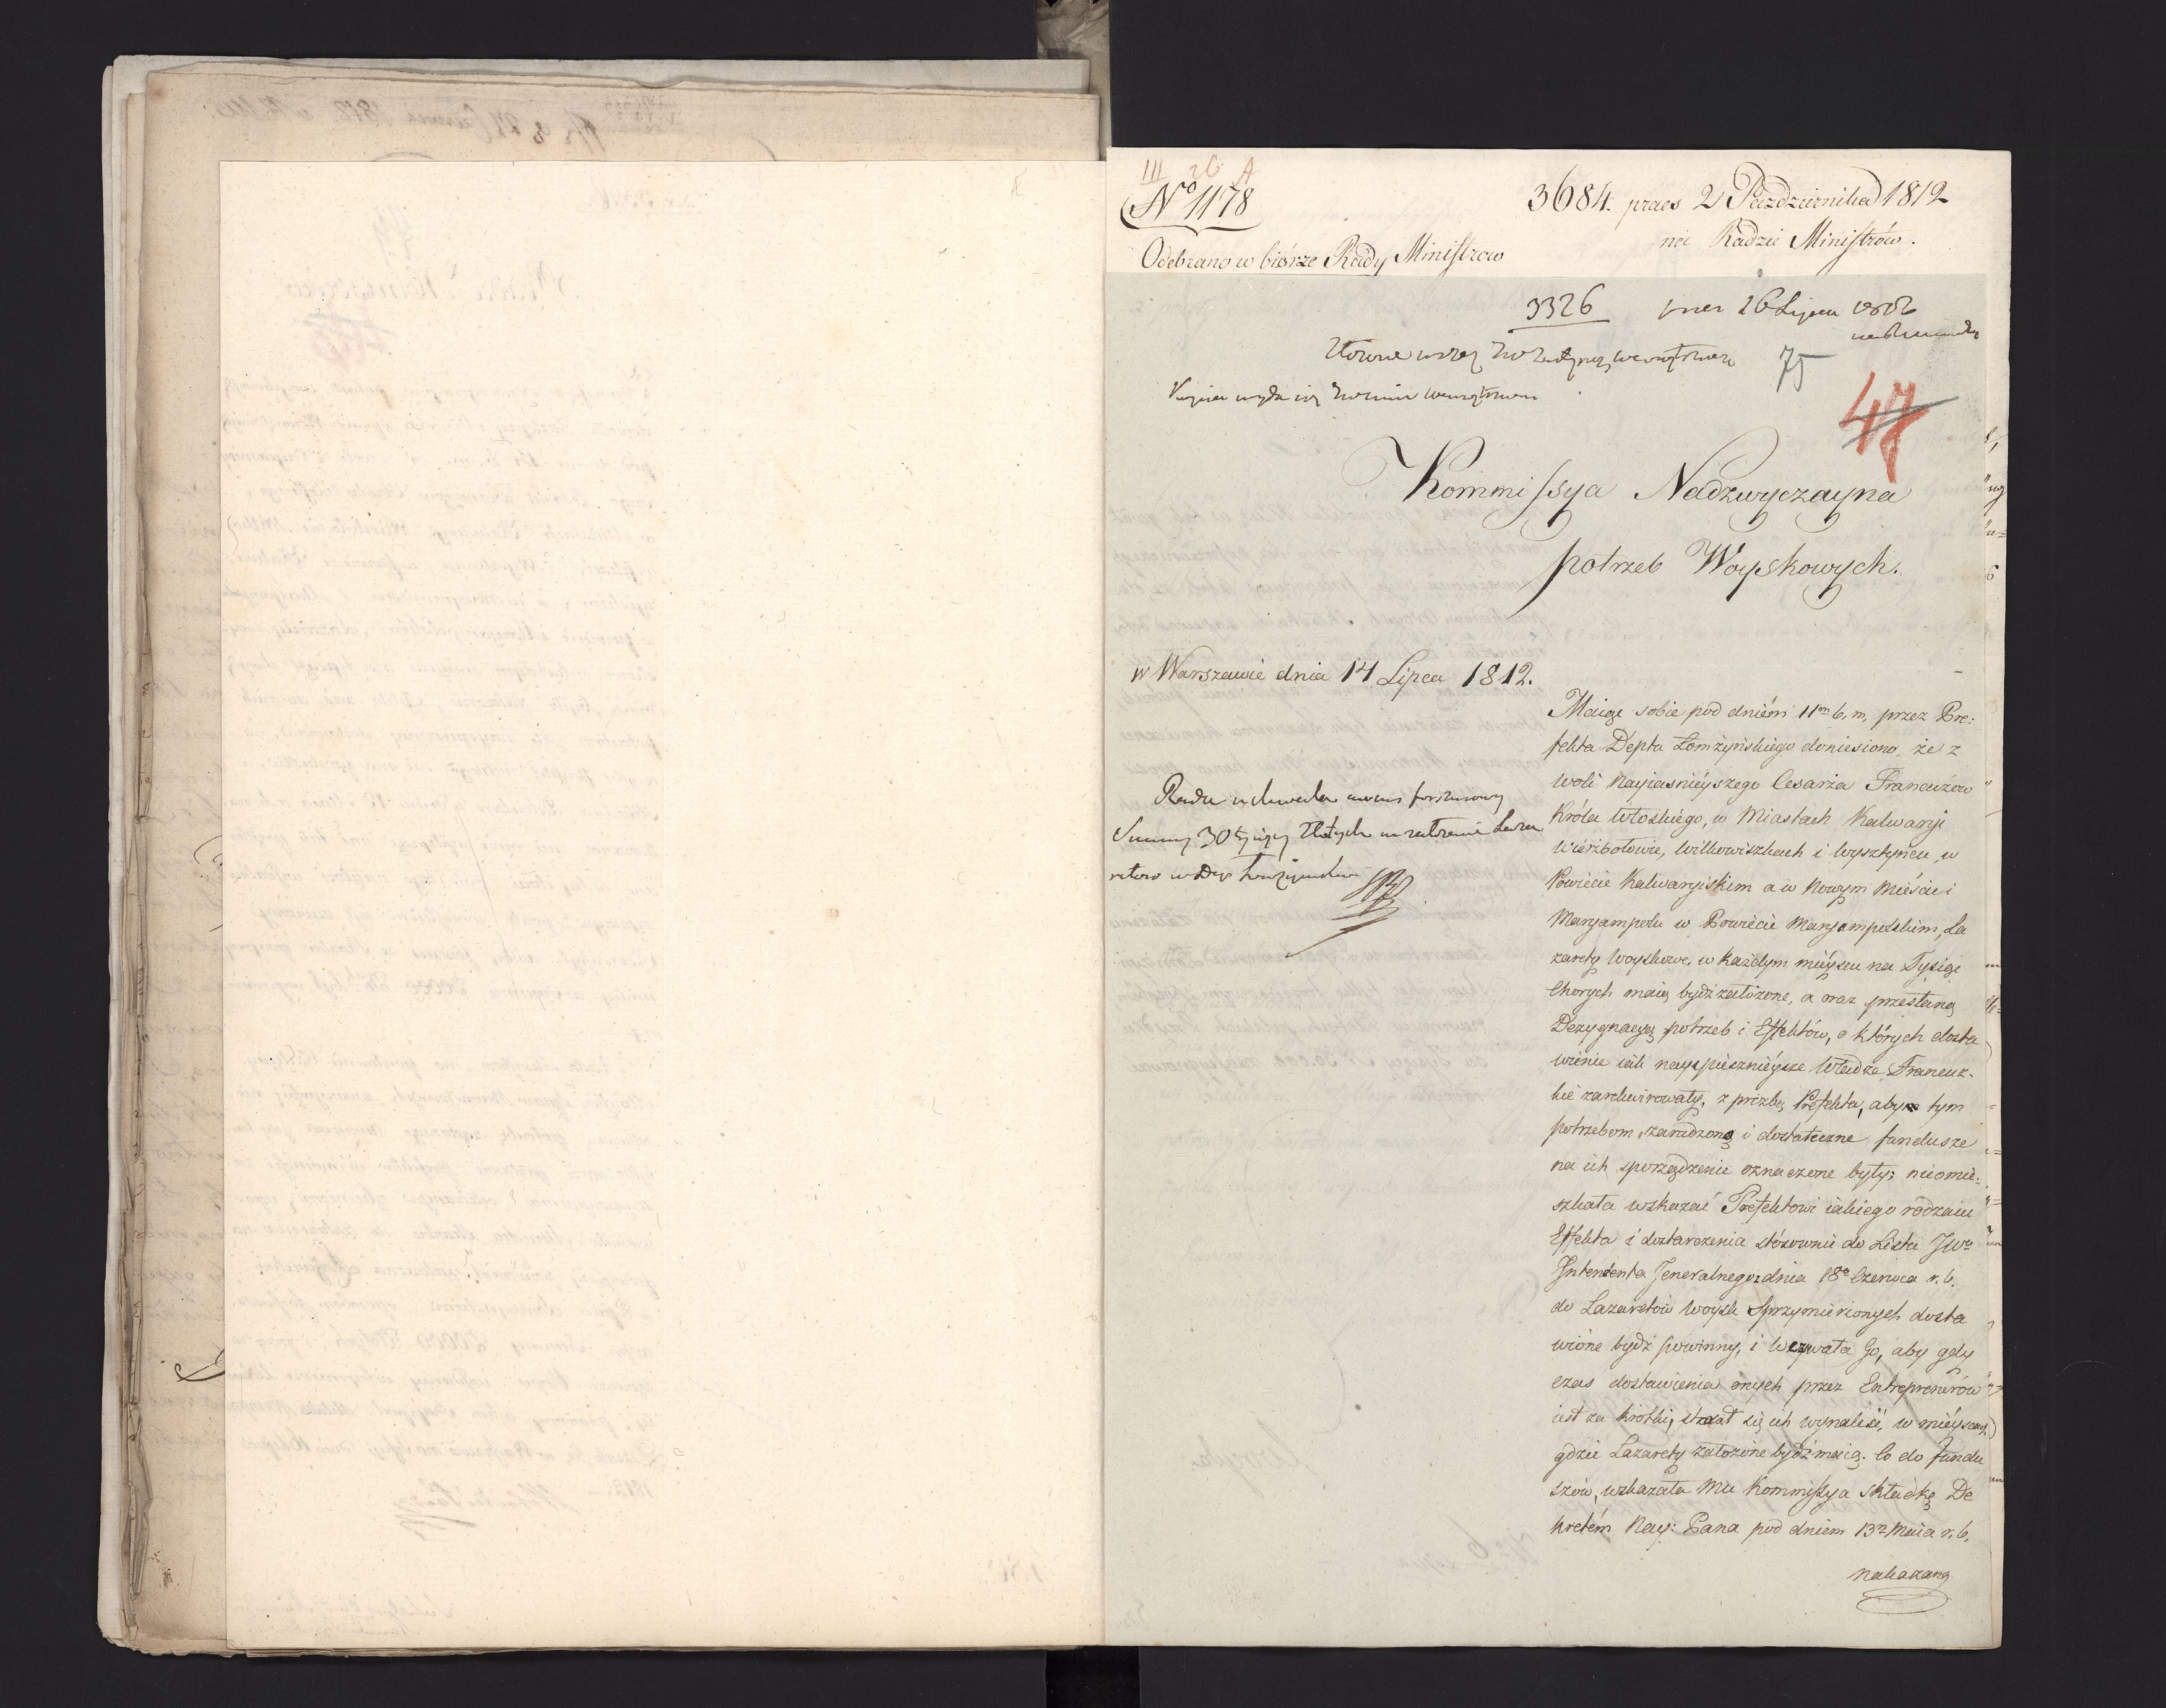 III 26 A
No 1178
3684. praes 2 Października 1812
na Radzie Ministrów.
Odebrano w biórze Rady Ministrow
3326 16 Lipca
75
47
Kommissya Nadzwyczayna
potrzeb Woyskowych.
w Warszawie dnia 14 Lipca 1812.
Rada uchwala
Summy 30 tysięcy Złotych na założenie Laza
retow w Dep Łomżyńskim
Maiąc sobie pod dniém 11m b. m. przez Pre:
fekta Depta Łomżyńskiego doniesiono, że z
woli Nayiasnieyszego Cesarza Francuzów
Króla Włoskiego, w Miastach Kalwaryi
Wierzbołowie, Wilkowiszkach i Wysztyncu, w
Powiecie Kalwaryiskim a w Nowym Mieście i
Maryampolu w Powiecie Maryampolskim, La
zarety Woyskowe, w każdym mieyscu na Tysiąc
Chorych maią bydź założone, a oraz przesłaną
Dezygnacyą potrzeb i Effektów, o których dosta
wienie iak nayspieszniéysze Władze Francuz-
kie zarekwirowały, z prozbą Prefekta, aby tym
potrzebom zaradzono i dostateczne fundusze
na ich sporządzenie oznaczone były; nieomie:
szkała wskazać Prefektowi iakiego rodzaiu
Effekta i dostarczenia stósownie do Listu JWo
Intendenta Jeneralnego z dnia 18o Czerwca r. b.
do Lazaretów Woysk Sprzymierzonych dosta
wione bydź powinny, i wezwała Go, aby gdy
czas dostawienia onych przez Entreprenerów
iest za krótki, starał się ich wynaleść, w mieyscu,
gdzie Lazarety założone bydź maią. Co do fundu
szów, wskazała Mu Kommissya składkę De
kretém Nay: Pana pod dniem 13m Maia r. b.
nakazaną